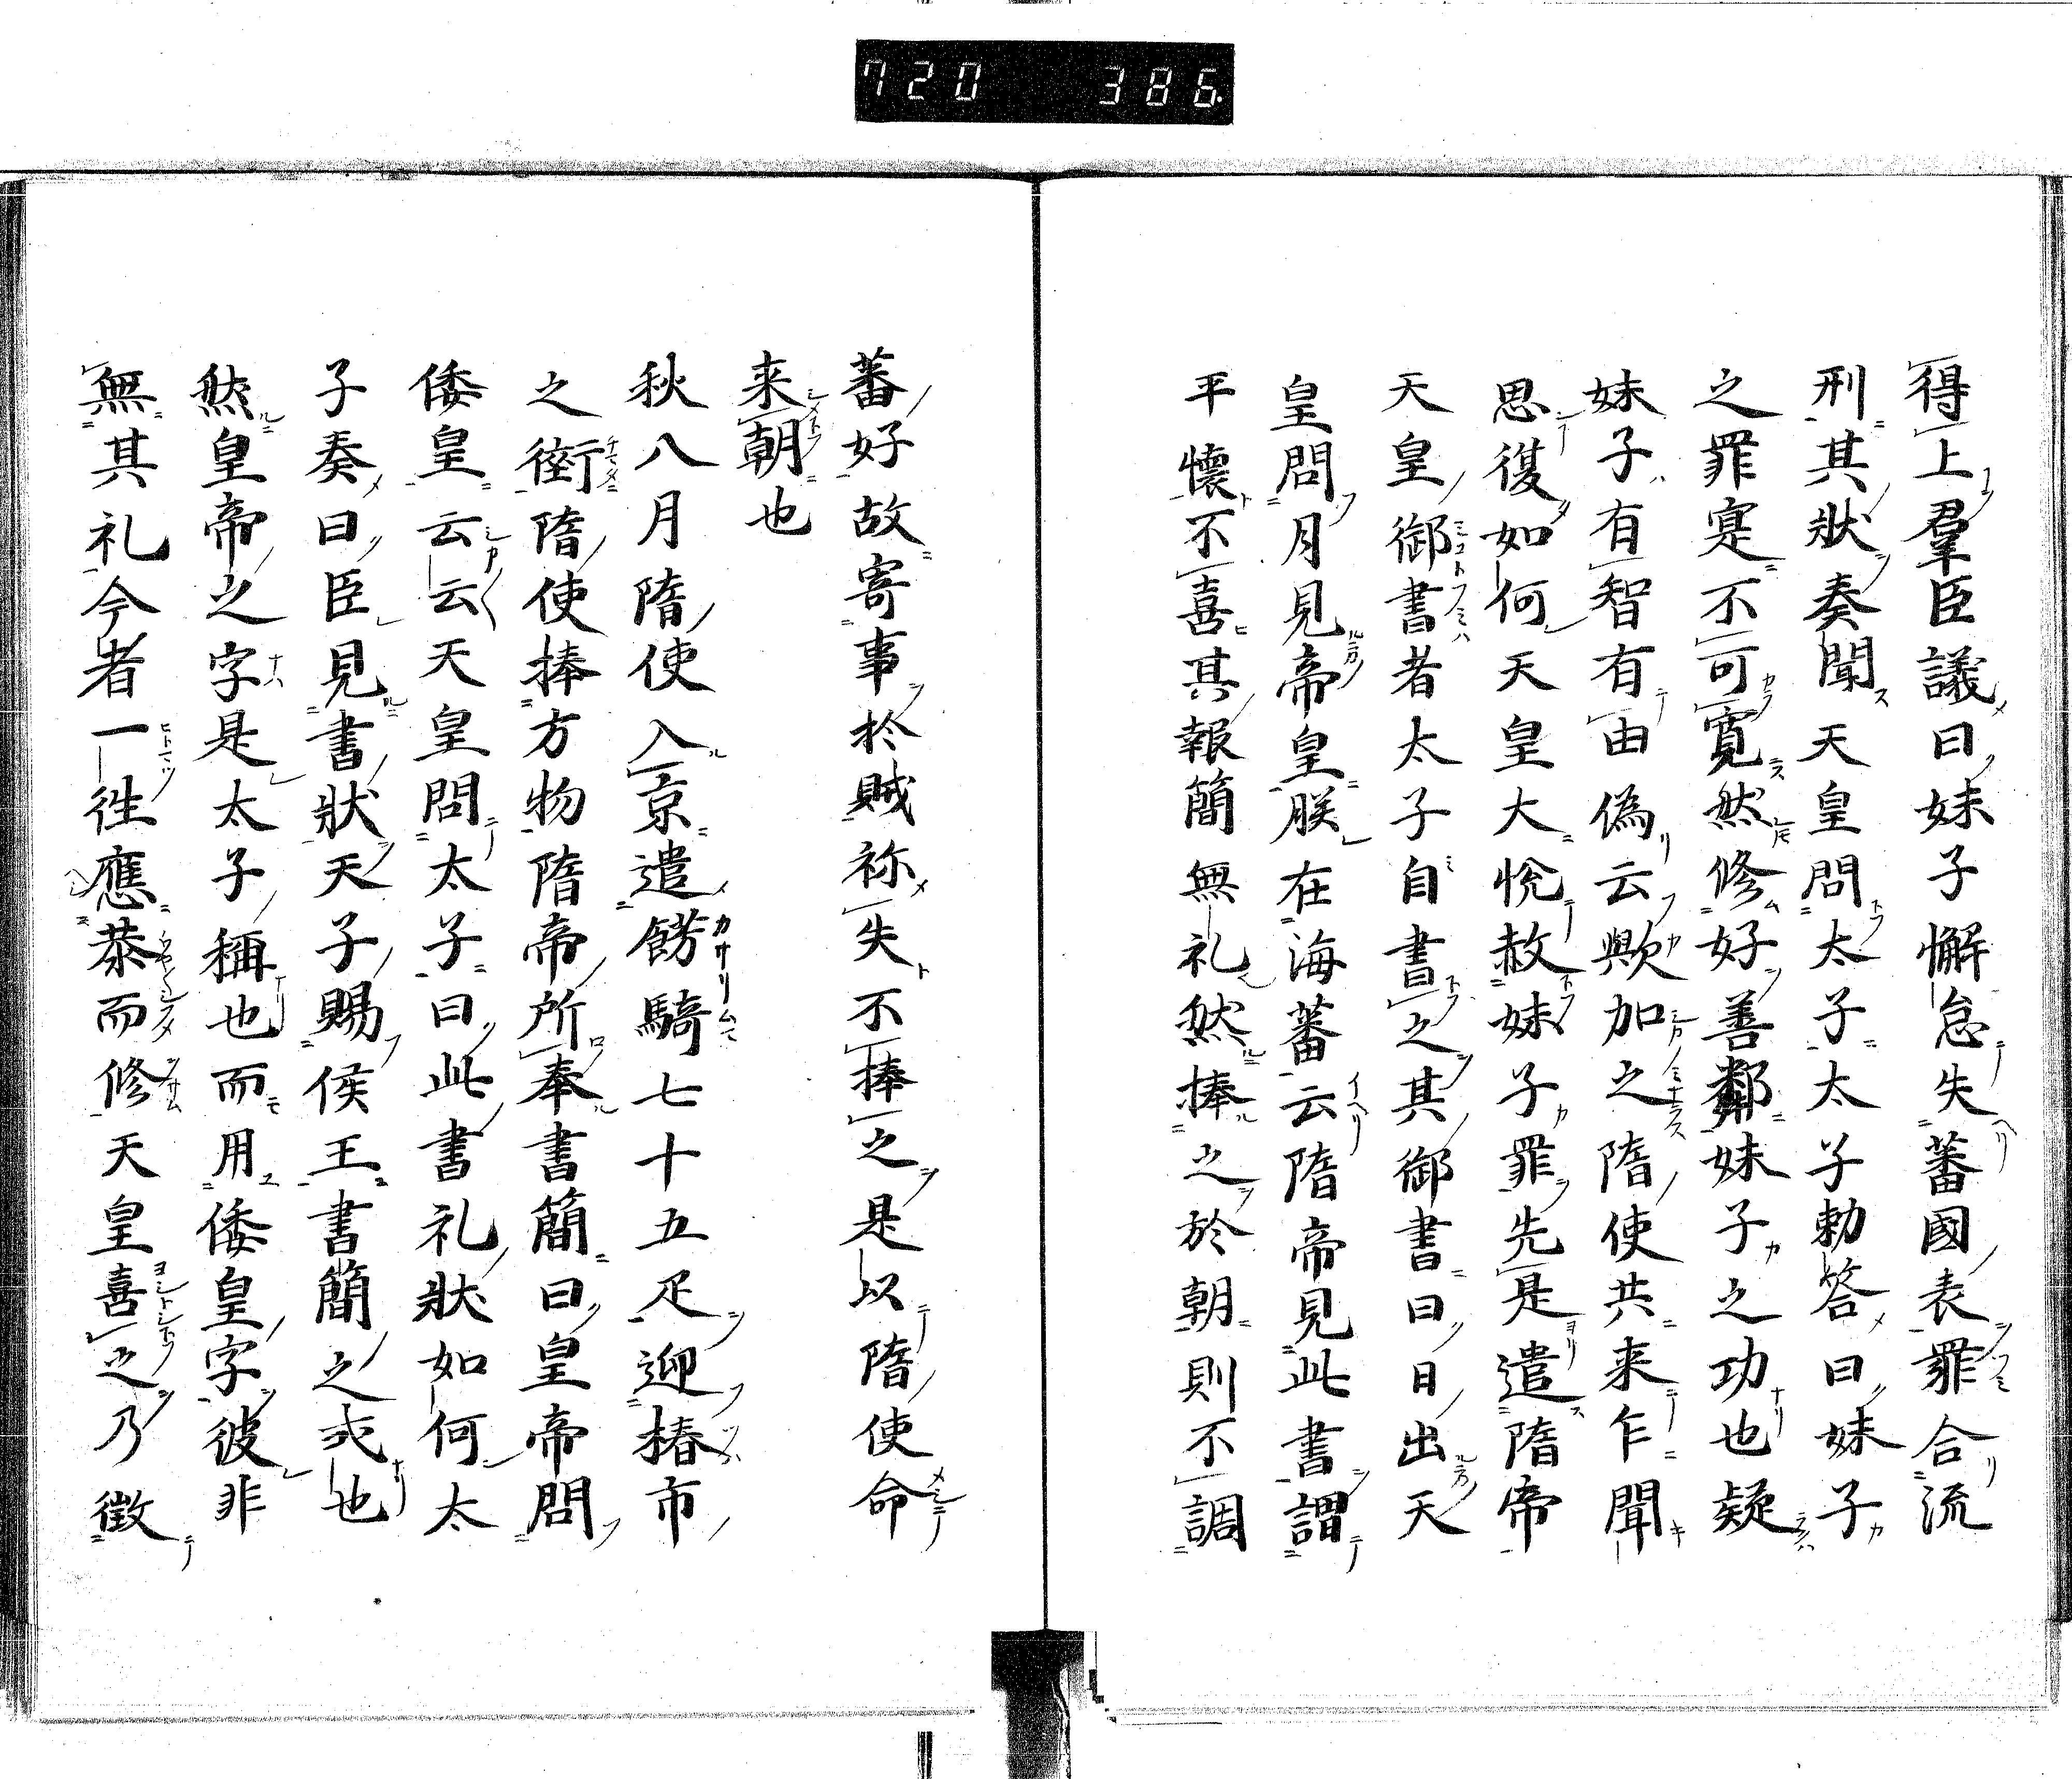 720 386
得上羣臣議曰妹子懈怠失蕃國表罪合流
刑其狀奏聞天皇問太子太子勅答曰妹子
之罪寔不可寛然修好善鄰妹子之功也疑
妹子有智有由偽云歟加之隋使共来乍聞
思復如何天皇大恱赦妹子罪先是遣隋帝
天皇御書者太子自書之其御書曰日出天
皇問月見帝皇朕在海蕃云隋帝見此書謂
平懐不喜其報簡無礼然捧之於朝則不調
蕃好故寄事於賊祢失不捧之是以隋使命
来朝也
秋八月隋使入京遣餝騎七十五疋迎椿市
之衢隋使捧方物隋帝所奉書簡曰皇帝問
倭皇云云天皇問太子曰此書礼狀如何太
子奏曰臣見書狀天子賜侯王書簡之式也
然皇帝之字是太子稱也而用倭皇字彼非
無其礼今者一往應恭而修天皇喜之乃徴